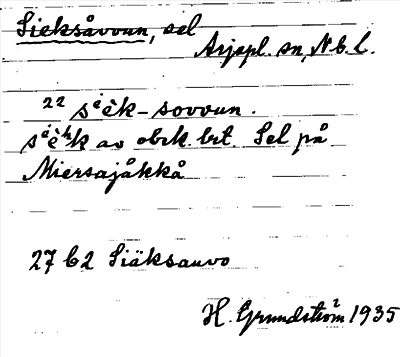 Sieksåvvun, sel
Arjepl. sn, Nb. l.
22 sėèk-sovvun.
sėèʰk av obek. bet. Sel på
Miersajåkkå
27 b2 Siäksauvo
H. Grundström 1935